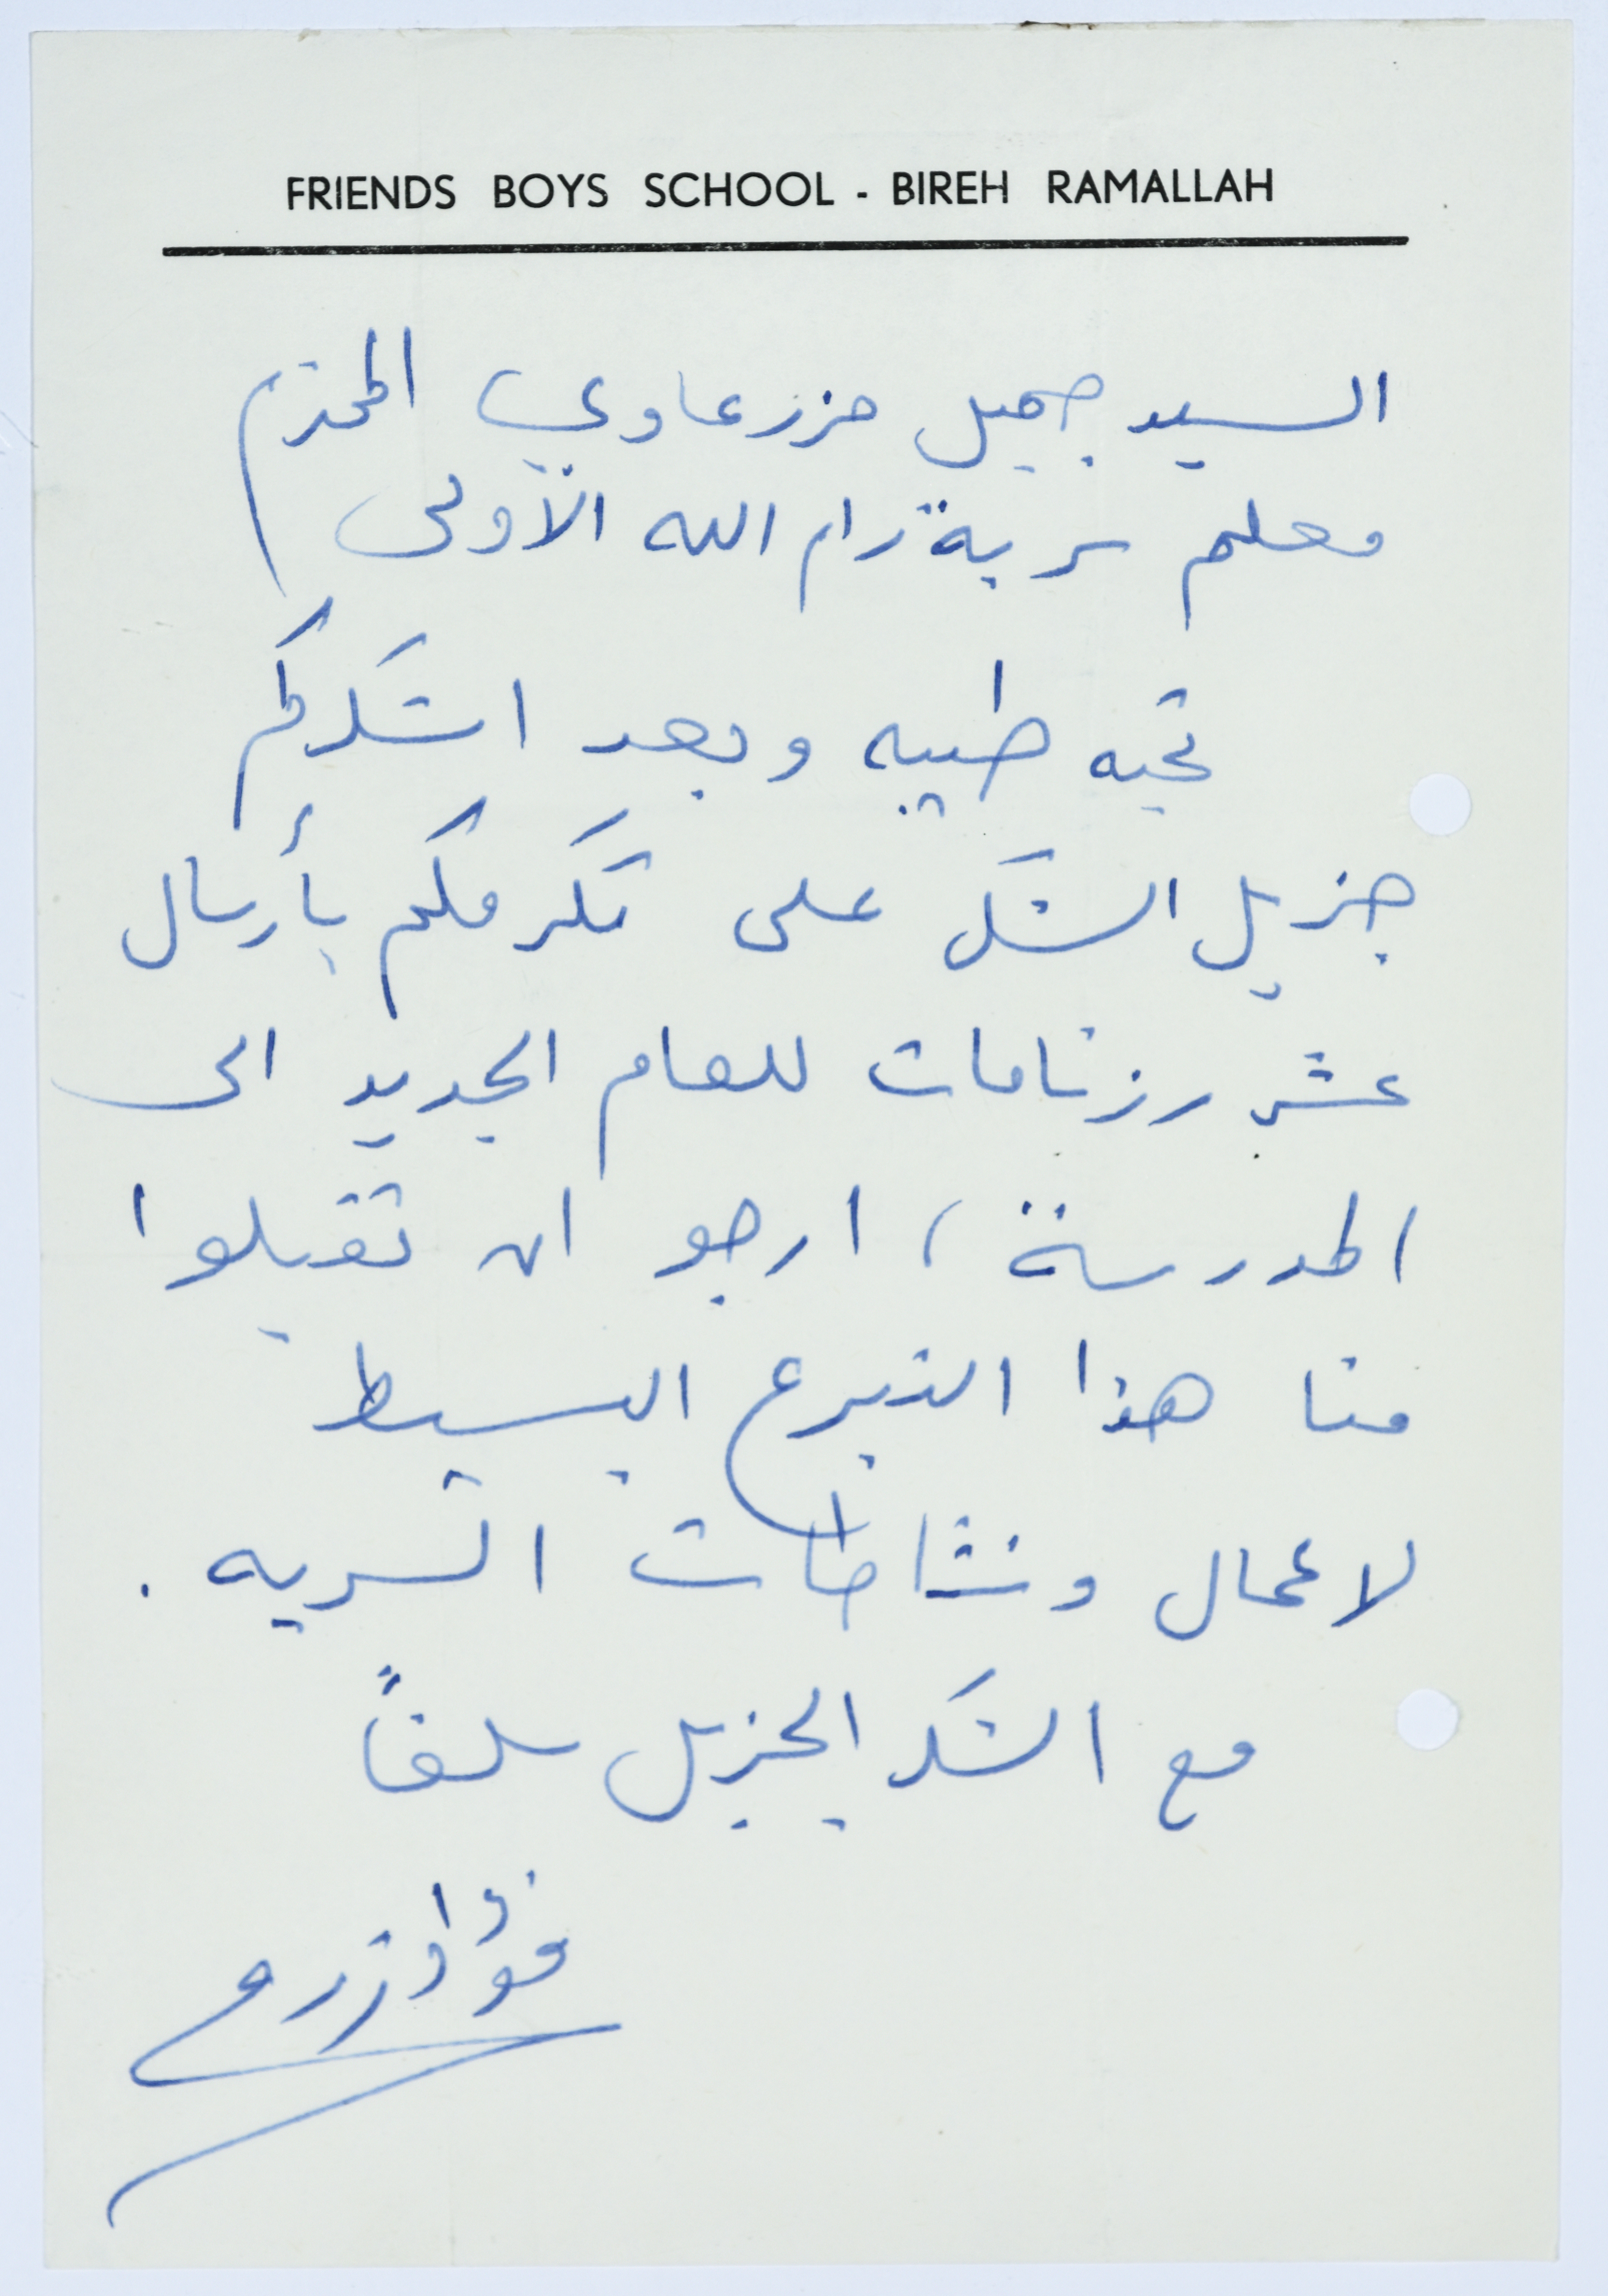 FRIENDS BOYS SCHOOL - BIREH RAMALLAH
السيد جميل مزرعاوي المحترم
معلم سرية رام الله الأولى
تحيه طيبه وبعد اشكركم
جزيل الشكر على تكرمكم بأرسال
عشر رزنامات للعام الجديد الى
المدرسة، ارجو ان تقبلوا
منا هذا التبرع البسيط
لاعمال ونشاطات السريه .
مع الشكر الجزيل سلفاً
فؤاد زرو